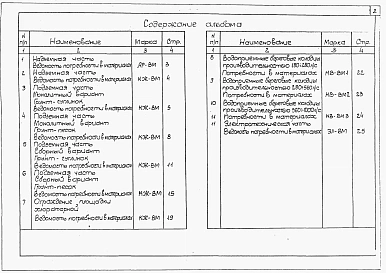 2
Содержание альбома
N п/п
Наименование
Марка
Стр.
1
2
3
4
1 Надземная часть
Ведомость потребности в материалах АР-ВМ 3
2 Надземная часть
Ведомость потребности в материалах КЖ-ВМ 4
3 Подземная часть
Монолитный вариант
Грунт-суглинок
Ведомость потребности в материалах КЖ-ВМ 5
4 Подземная часть
Монолитный вариант
Грунт-песок
Ведомость потребности в материалах КЖ-ВМ 8
5 Подземная часть
Сборный вариант
Грунт-суглинок
Ведомость потребности в материалах КЖ-ВМ 11
6 Подземная часть
Сборный вариант
Грунт-песок
Ведомость потребности в материалах КЖ-ВМ 15
7 Ограждение площадки
хлораторной
Ведомость потребности в материалах КЖ-ВМ 19
N п/п
Наименование
Марка
Стр.
1
2
3
4
8 Водоприемные береговые колодцы
производительностью
Потребности в материалах НВ-ВМ1 22
9 Водоприемные береговые колодцы
производительностью
Потребности в материалах НВ-ВМ2 23
10 Водоприемные береговые колодцы
производительностью
Потребности в материалах НВ-ВМ3 24
11 Электротехническая часть
Ведомость потребности в материалах ЭЛ-ВМ 25